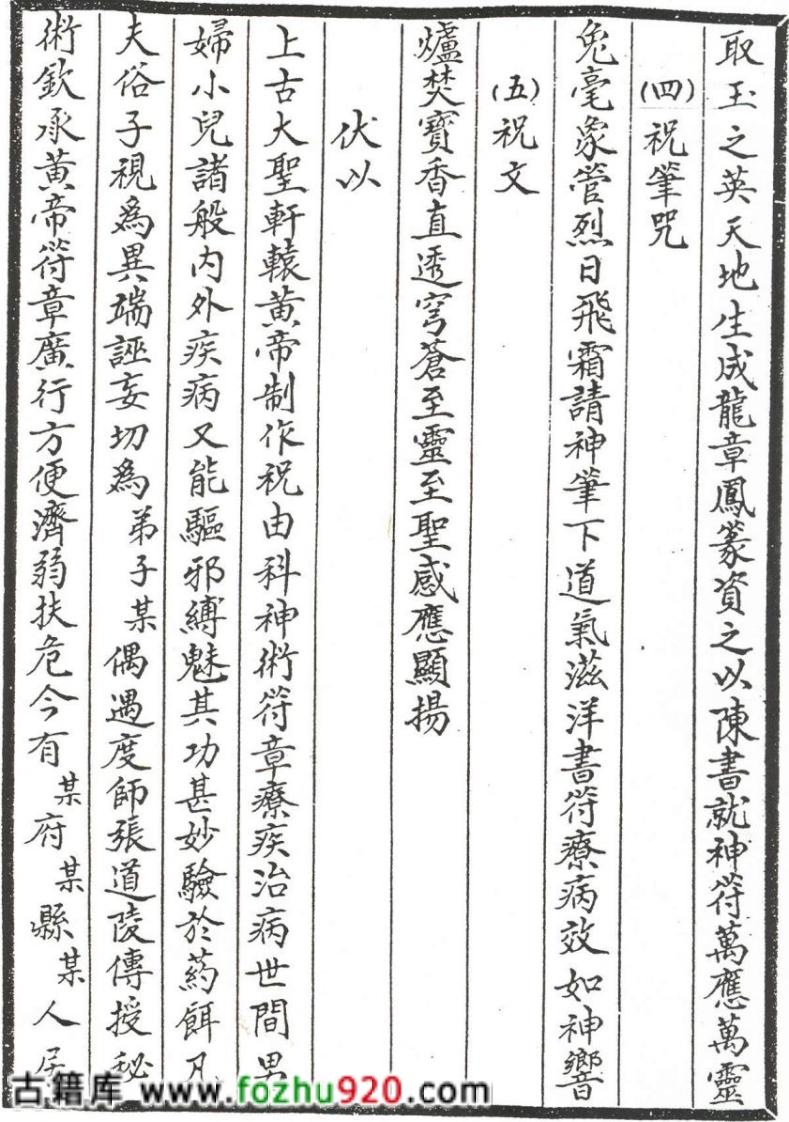 取玉之英天地生成龍章鳳篆資之以陳書就神符萬應萬靈
(四)祝筆咒
兔毫象管烈日飛霜請神筆下道氣滋洋書符療病效如神響
(五)祝文
爐焚寶香直透穹蒼至靈至聖感應顯揚
伏以
上古大聖軒轅黃帝制作祝由科神術符章療疾治病世間男
婦小兒諸般内外疾病又能驅邪縛魅其功甚妙驗於药餌凡
夫俗子視為異端誣妄切為弟子某偶遇度師張道陵傳授秘
術欽承黃帝符章廣行方便濟弱扶危今有某府某縣某人居
古籍库 www.fozhu920.com